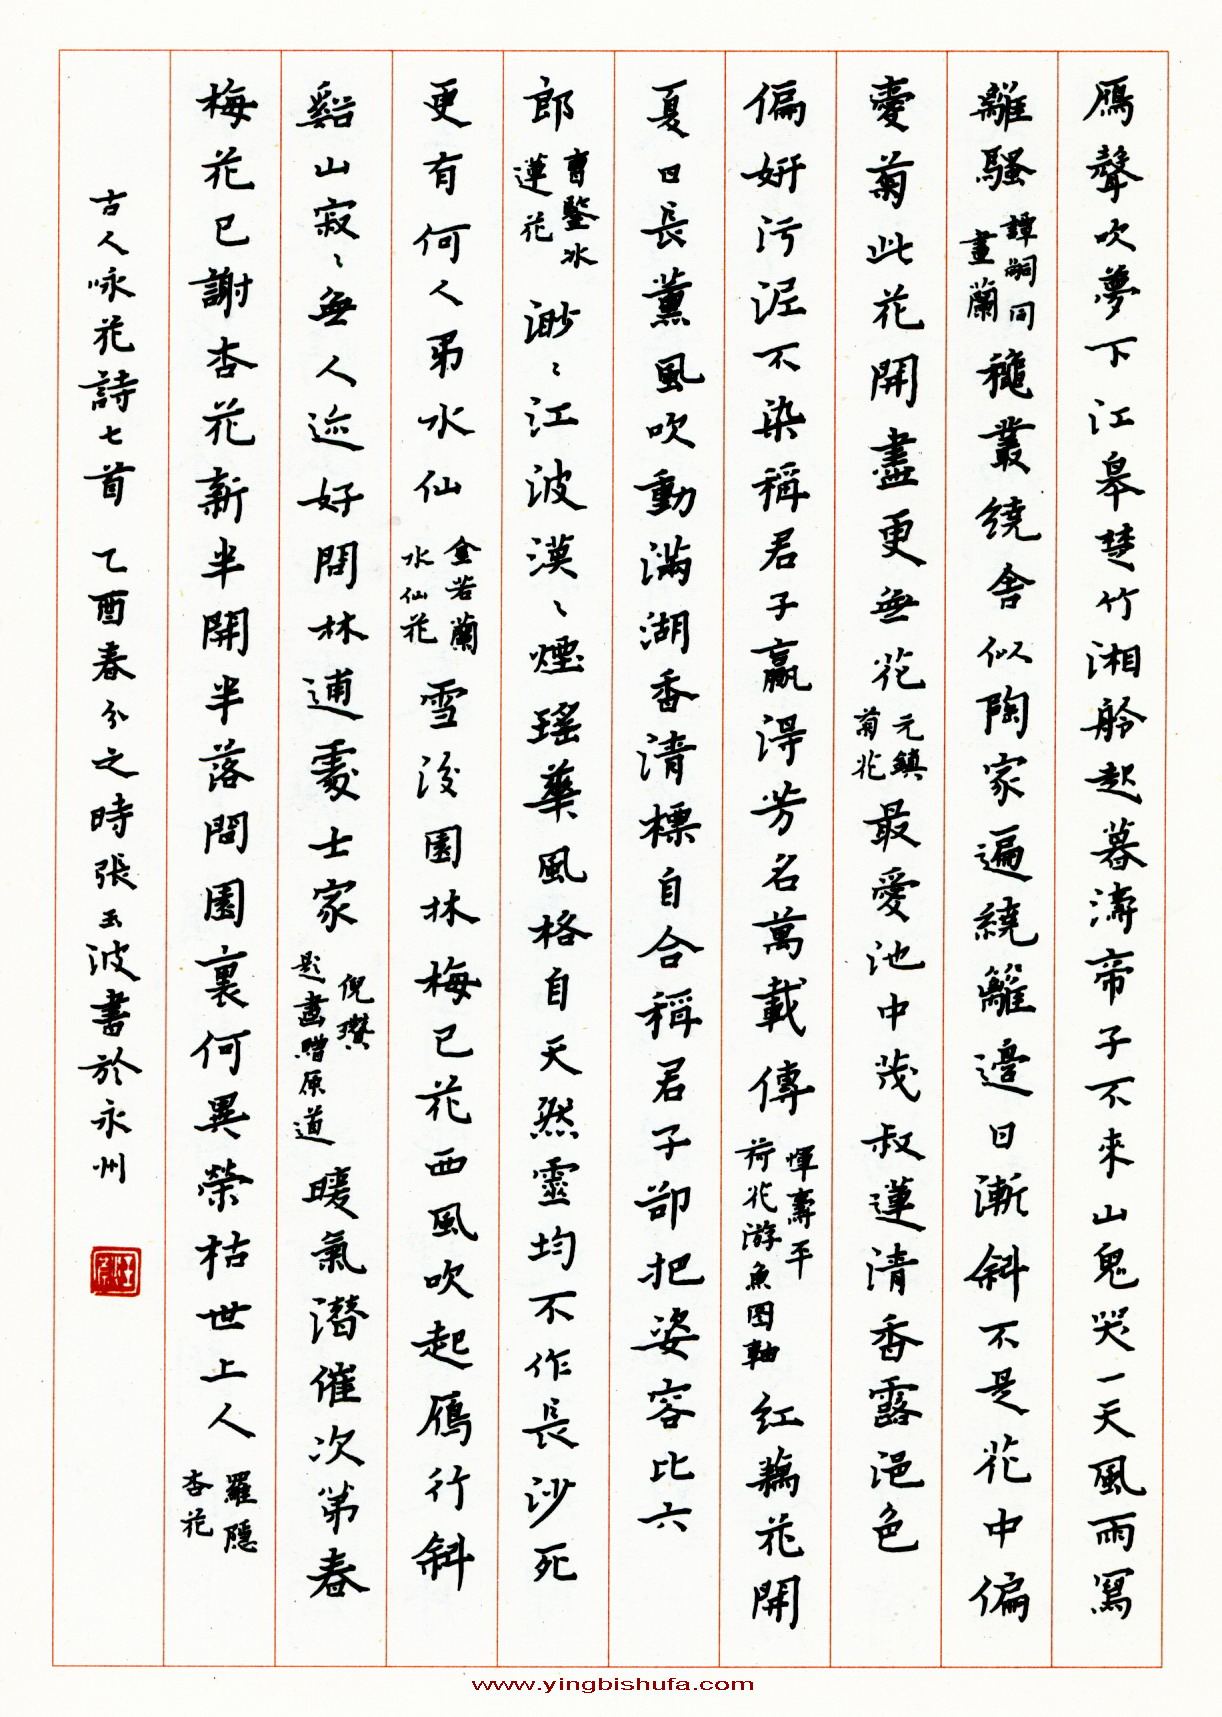 鴈聲吹夢下江皋楚竹湘舲起暮濤帝子不來山鬼哭一天風雨寫
離騷 譚嗣同畫蘭 穐叢繞舍似陶家遍繞籬邊日漸斜不是花中偏
愛菊此花開盡更無花 元鎮菊花 最愛池中茂叔蓮清香露浥色
偏妍污泥不染稱君子贏得芳名萬載傳 惲壽平荷花游魚图軸 紅藕花開
夏日長薰風吹動滿湖香清標自合稱君子卻把姿容比六
郎 曹鑒冰蓮花 渺〻江波漠〻煙瑤華風格自天然靈均不作長沙死
更有何人弔水仙 金若蘭水仙花 雪後園林梅已花西風吹起鴈行斜
谿山寂〻無人迹好問林逋處士家 倪瓚題畫贈原道 暖氣潛催次第春
梅花已謝杏花新半開半落閒園裏何異榮枯世上人 羅隱杏花
古人咏花詩七首 乙酉春分之時張玉波書於永州
www.yingbishufa.com